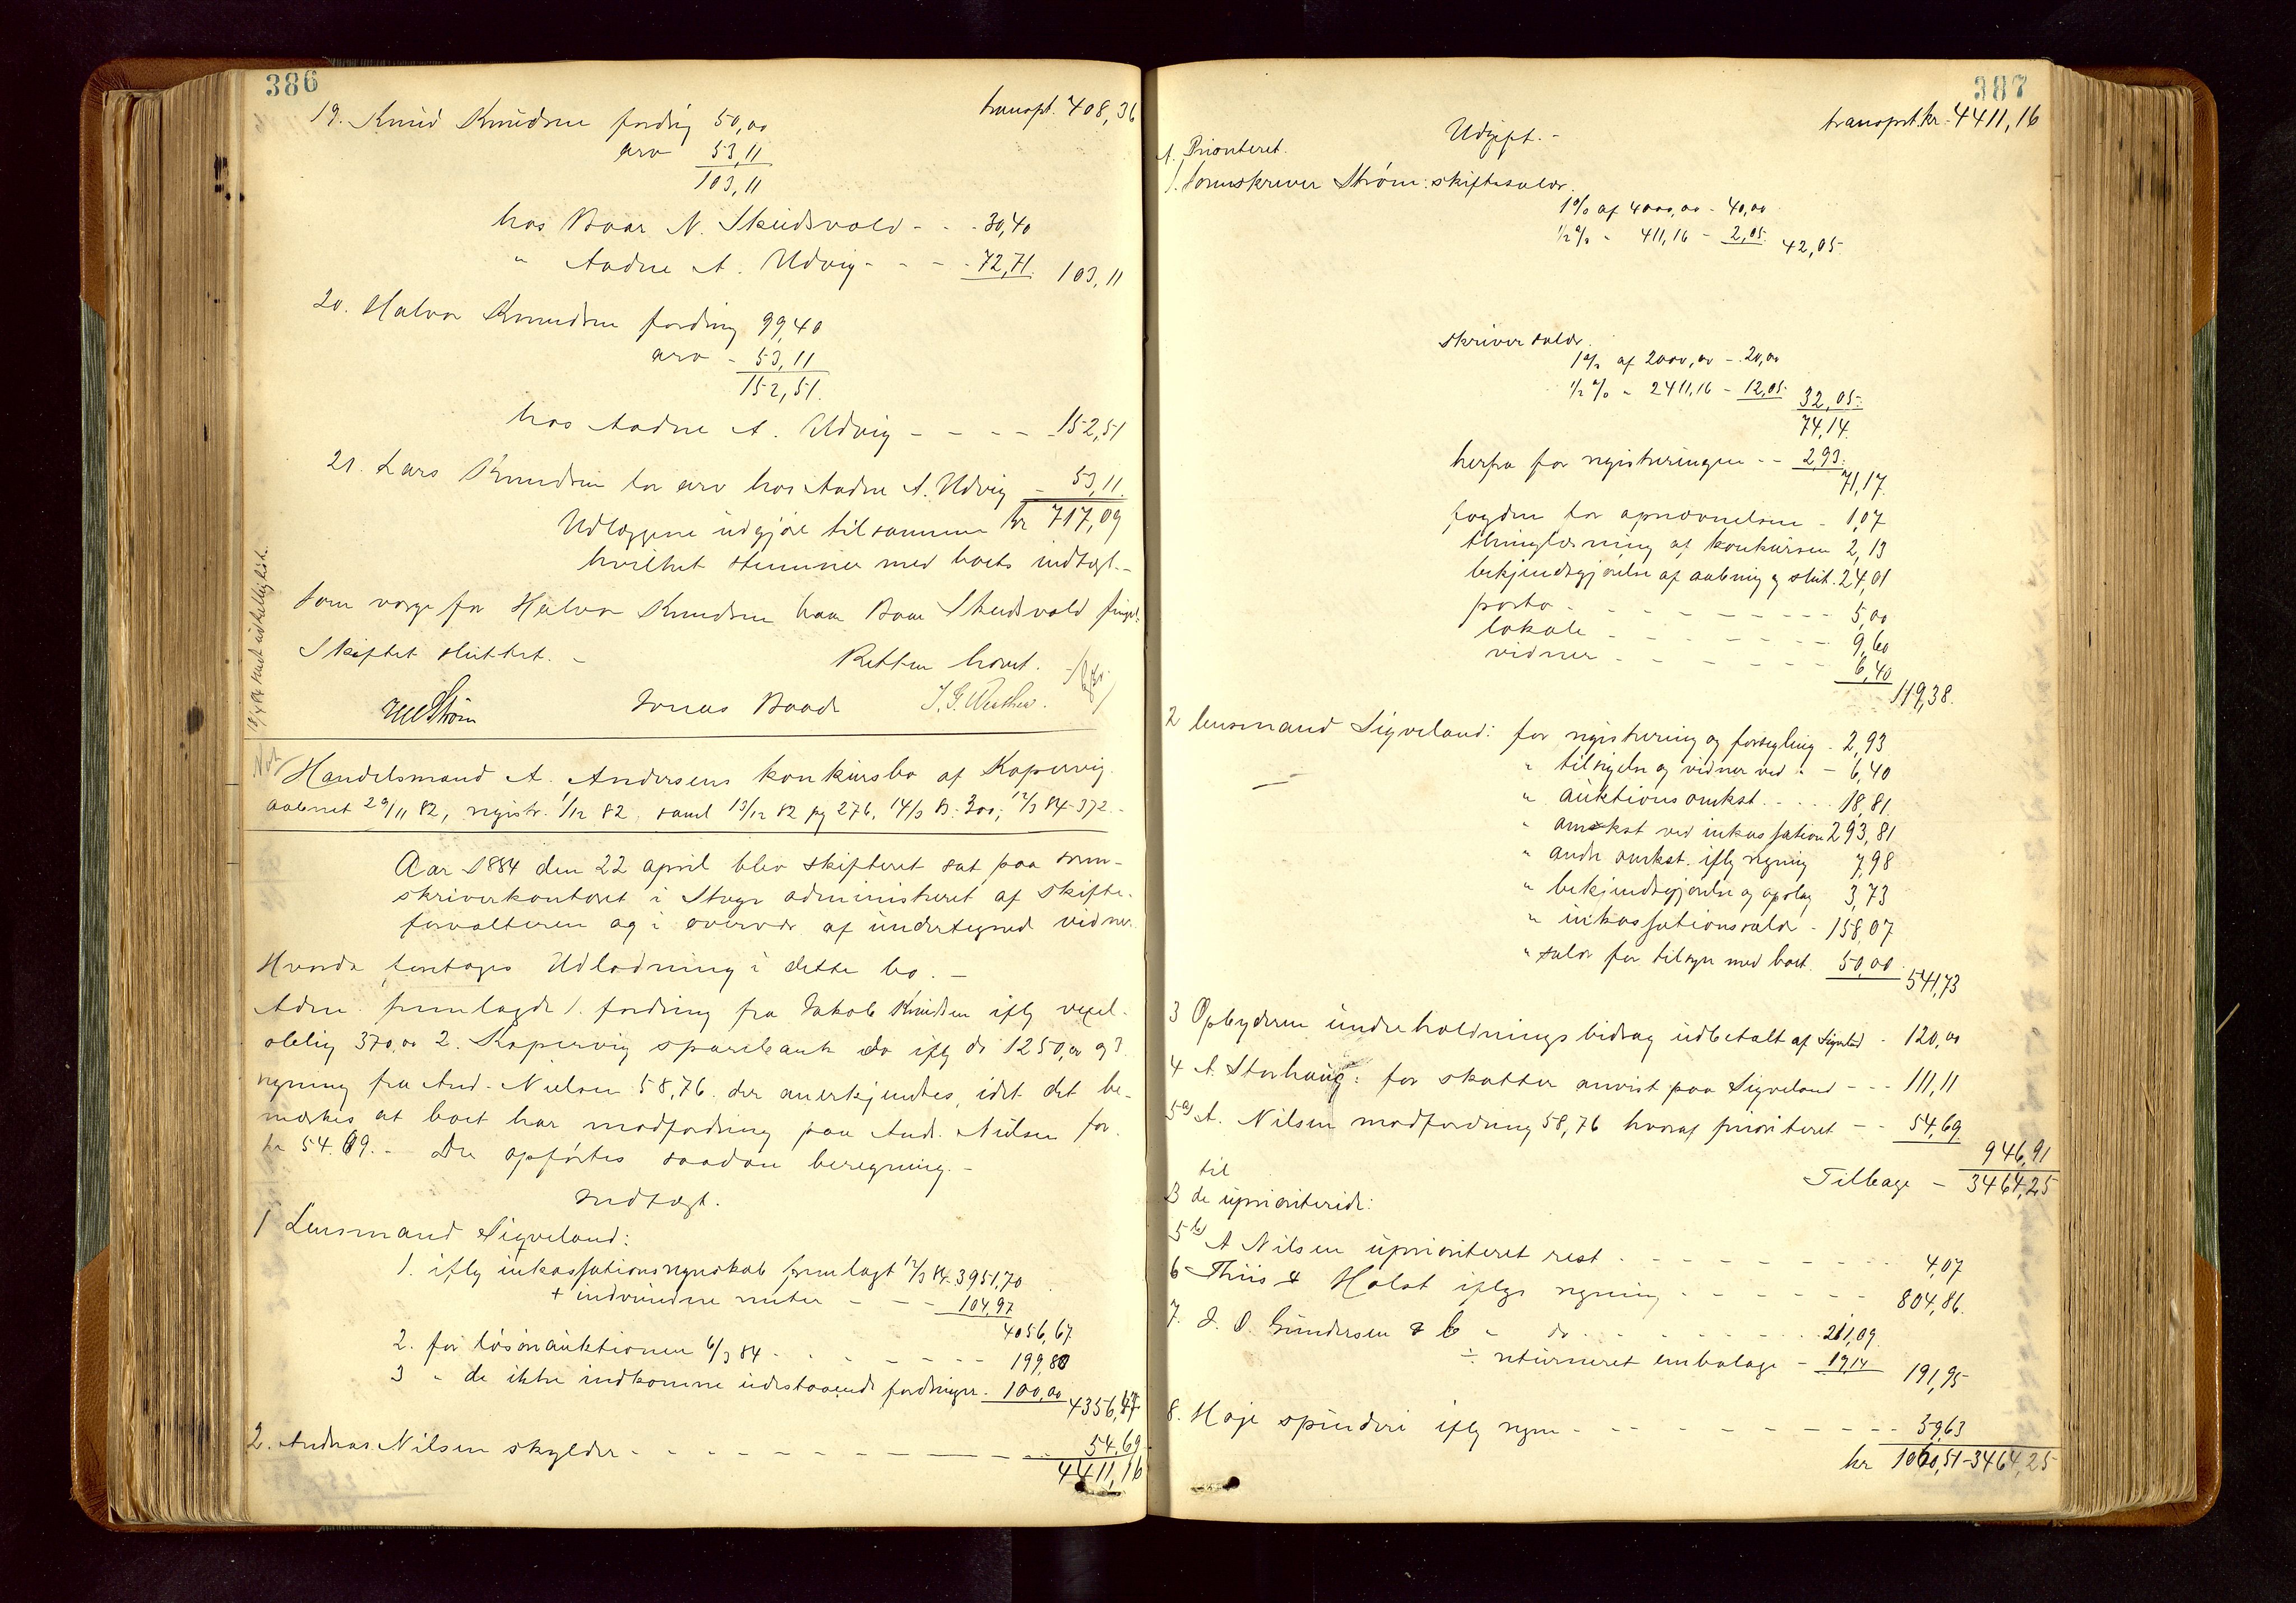 386
transpt. 408,36
19. Knud Knudsen fordrg 50,00
arv 53,11
103,11
hos Baar N. Skeidsvold - - - 30,40
" Aadne A. Udvig - - - - 72,71 103,11
20. Halvor Knudsen fordring 99,40
arv - 53,11
152,51.
hos Aadne A. Udvig - - - - 152,51
21. Lars Knudsen for arv hos Aadne A. Udvig - 53,11.
Udlæggene udgjør tilsammen kr 717,09
hvilket stemmer med boets indtægt. -
Som værge for Halvor Knudsen har Baar Skeidsvold
Skiftet sluttet. - Retten hævet.
Strøm Jonas Baad
Handelsmand A. Andersens konkursbo af Kopervig.
aabnet 29/11 82, registr. 1/12 82, saml 13/12 82 pg 276, 14/3 83. 300; 12/3 84-372. -
Aar 1884 den 22 april blev skifteret sat paa sorn-
skriverkontoret i Stege administreret af skifte-
forvalteren og i overvær af undertegned vidner.
Hvorda foretoges Udlodning i dette bo. -
Adm. fremlagde 1. fordring fra Jakob Knudsen iflg vexel-
oblig 370,00 2. Kopervig sparebank do iflg do 1250,00 og 3.
regning fra And. Nielsen 58,76. der anerkjendtes, idet det be-
mærkes at boet har modfordring paa And. Nielsen for
kr 54.69. - Der opførtes saadan beregning. -
Indtægt.
1 Lensmand Sigveland:
1. iflg inkassationsregnskab fremlagt 12/3 84. 3951,70
+ indvundne renter - - - 104,97
4056,67
2. for løsøreauktionen 6/3 84 - - - - - - 199,80
3 " de ikke indkomne udestaaende fordringer - 100,00 4356,47
2. Andreas Nilsen skylder - - - - - - - - - 54,69
4411,16
387
transprt. kr. 4411,16
Udgift. -
A. Prioriteret.
1. Sornskriver Strøm: skiftesalær.
1% af 4000,00 - 40,00
1/2% - 411,16 - 2,05. 42,05
skriversalær.
1% af 2000,00 - 20,00
1/2% - 2411,16 - 12,05 32,05
74,14.
herfra for registreringen - - 2,93.
71,17.
fogden for opnævnelsen - 1,07
thinglæsning af konkursen 2,13
bekjendtgjørelse af aabning og slut. 24,01
porto - - - - - - - - 5,00
lokale - - - - - - - 9,60
vidner - - - - - - - 6,40
119,38.
2 lensmand Sigveland: for registrering og forsegling - 2,93
" tilsigelse og vidner ved " - 6,40
" auktionsomkst. - - - 18,81
" omkst ved inkassation 293,81
" andre omkst. iflg regning 7,98
" bekjendtgjørelse og opslag 3,73
" inkassationssalær - 158,07
" salær for tilsyn med boet. 50,00
541,73
3 Opbyderen underholdningsbidrag udbetalt af Sigveland - 120,00
4 A. Storhaug: for skatter anvist paa Sigveland - - - 111,11
5a) A. Nilsen modfordring 58,76 hvoraf prioriteret - - 54,69
946,91
Tilbage - 3464,25
til
B de uprioriterede:
5b) A Nilsen uprioriteret rest - - - - - - - - 4,07
6 Thiis & Holst iflge regning - - - - - - 804,86.
7. J. O. Gundersen & C " do - - - - - - - 211,09.
÷ returneret embalage - 19,14 191,95
8. Haje spinderi iflg regn - - - - - - - - 59,63
kr 1060,51-3464,25